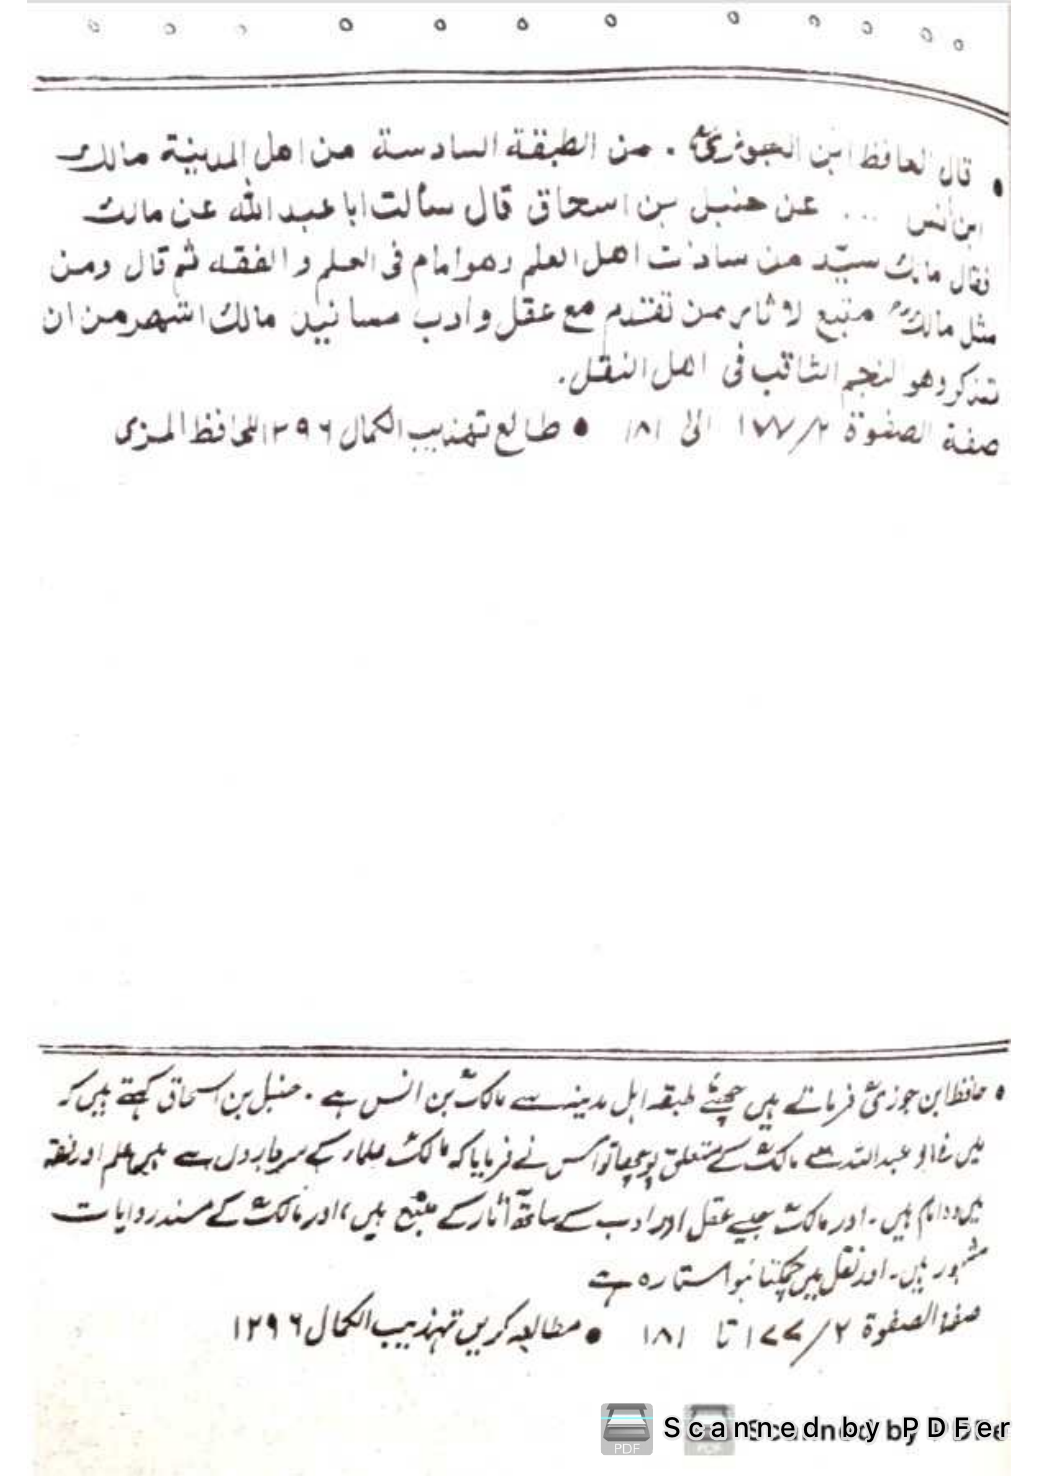 • قال الحافظ ابن الجوزیؒ . من الطبقة السادسة من اهل المدینة مالك
ابن انس ... عن حنبل بن اسحاق قال سألت ابا عبد الله عن مالك
فقال مالك سیّد من سادات اهل العلم وهو امام فی العلم و الفقه ثم قال ومن
مثل مالكؒ متبع لاثار من تقدم مع عقل و ادب مسانید مالك اشهر من ان
تذکر وهو النجم الثاقب فی اهل النقل.
صفة الصفوة ۲/۱۷۷ الی ۱۸۱ • طالع تهذیب الکمال ۱۲۹۶ للحافظ المزی
• حافظ ابن جوزیؒ فرماتے ہیں چھٹے طبقہ اہل مدینہ سے مالکؒ بن انس ہے ۔ حنبل بن اسحاق کہتے ہیں کہ
میں نے ابو عبداللہ سے مالکؒ کے متعلق پوچھا تو اس نے فرمایا کہ مالکؒ علماء کے سرداروں سے ہیں علم اور فقہ
میں وہ امام ہیں ۔ اور مالکؒ جیسے عقل اور ادب کے ساتھ آثار کے متبع ہیں، اور مالکؒ کے مسند روایات
مشہور ہیں ۔ اور نقل میں چمکتا ہوا ستارہ ہے
صفة الصفوة ۲/۱۷۷ تا ۱۸۱ • مطالعہ کریں تہذیب الکمال ۱۲۹۶
Scanned by PDFer